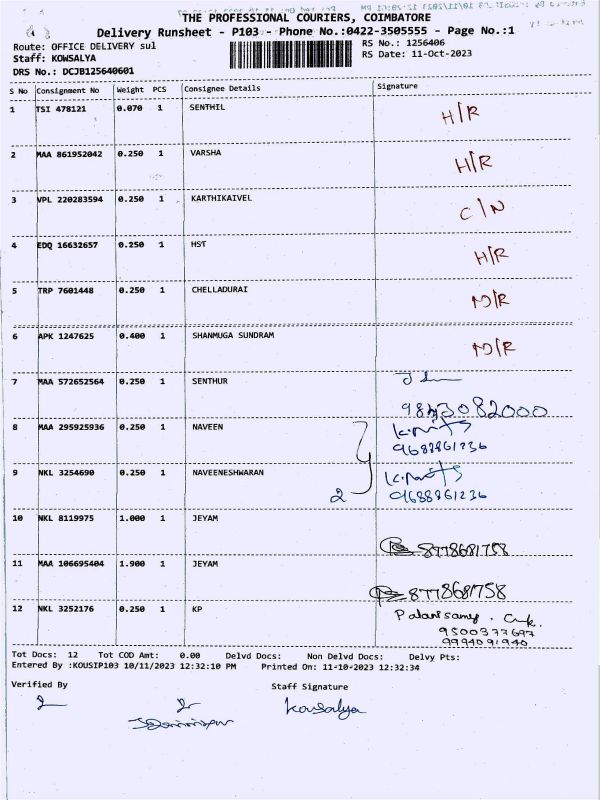 THE PROFESSIONAL COURIERS, COIMBATORE
Delivery Runsheet - P103 - Phone No.:0422-3505555 - Page No.:1
Route: OFFICE DELIVERY sul
RS No.: 1256406
Staff: KOWSALYA
RS Date: 11-Oct-2023
DRS No.: DCJB125640601
S No Consignment No Weight PCS Consignee Details Signature
1 TSI 478121 0.070 1 SENTHIL H/R
2 MAA 861952042 0.250 1 VARSHA H/R
3 VPL 220283594 0.250 1 KARTHIKAIVEL C/N
4 EDQ 16632657 0.250 1 HST H/R
5 TRP 7601448 0.250 1 CHELLADURAI N/R
6 APK 1247625 0.400 1 SHANMUGA SUNDRAM N/R
7 MAA 572652564 0.250 1 SENTHUR
9843082000
8 MAA 295925936 0.250 1 NAVEEN
9688861236
9 NKL 3254690 0.250 1 NAVEENESHWARAN
2 9688861236
10 NKL 8119975 1.000 1 JEYAM
8778681758
11 MAA 106695404 1.900 1 JEYAM
8778681758
12 NKL 3252176 0.250 1 KP Palanisamy
9500377697
9994091940
Tot Docs: 12 Tot COD Amt: 0.00 Delvd Docs: Non Delvd Docs: Delvy Pts:
Entered By :KOUSIP103 10/11/2023 12:32:10 PM Printed On: 11-10-2023 12:32:34
Verified By Staff Signature
Kowsalya